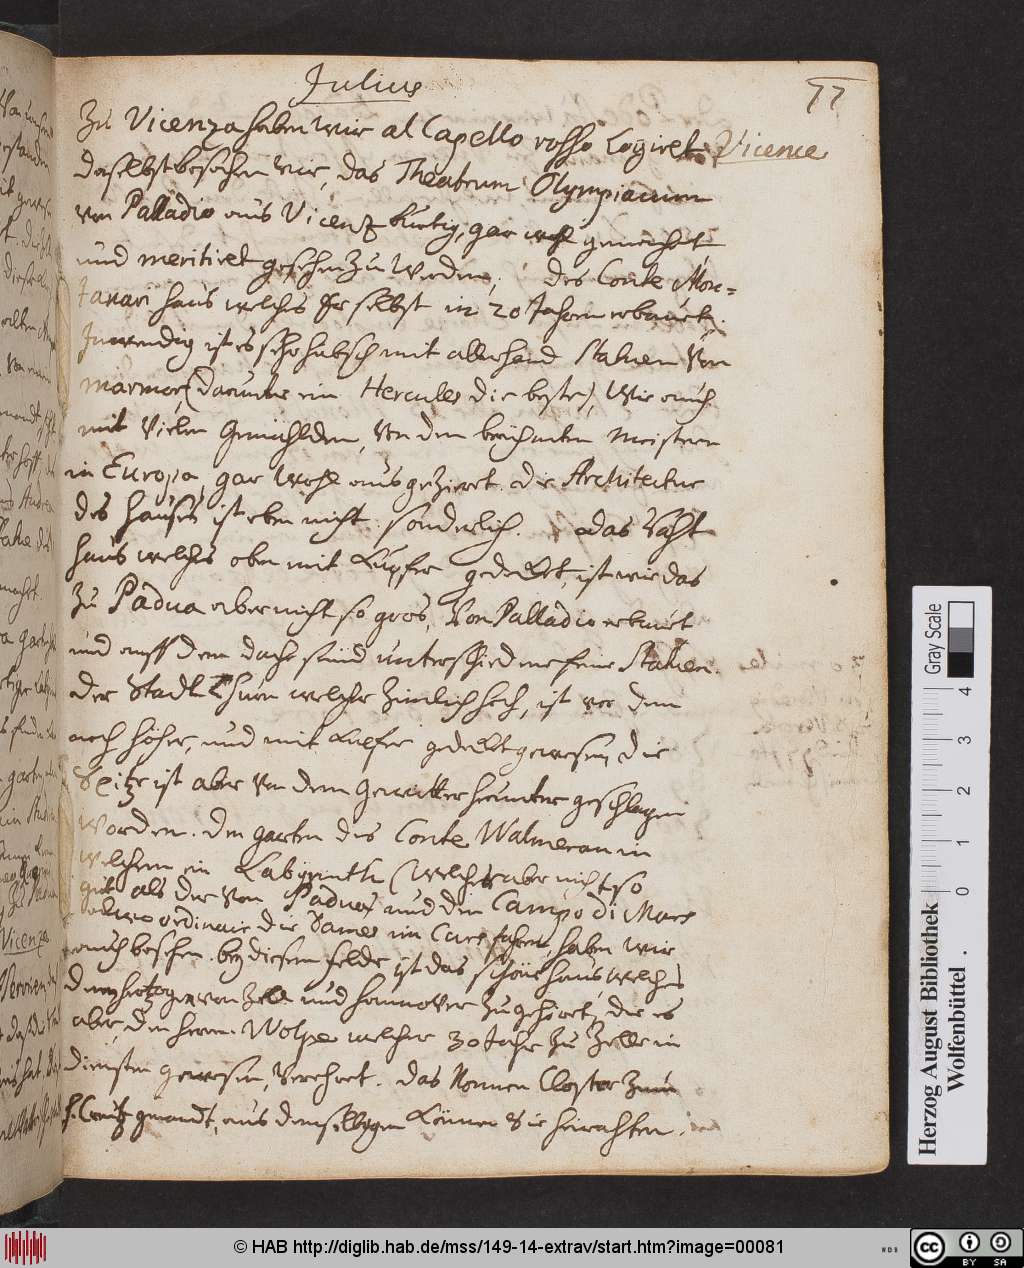 Julius
77
Zu Vicenza haben wir al Capello rosso Logiret
Vicence
daselbst besahen wir, das Theatrum Olympiacum
von Palladio aus Vicenz burtig, gar wohl gemacht,
und meritiret gesehen zu werden; des Conte Mon=
tanari haus welches Er selbst in 20 Jahren erbauet.
Inwendig ist es sehr hübsch mit allerhand Statuen von
marmor, (darunter ein Hercules die beste), Wie auch
mit Vielen Gemählden, von den berühmten Meistern
in Europa, gar wohl ausgezieret. die Architectur
des hauses ist eben nicht sonderlich. das Raht
haus welches oben mit Kupfer gedeckt, ist wie das
zu Padua aber nicht so gros, Von Palladio erbauet
und auff dem dache sind unterschiedene feine Statuen.
der Stadt Thurn welcher zimlich hoch, ist vor dem
noch höher, und mit Kupfer gedeckt gewesen, die
Spitze ist aber von dem Gewitter herunter geschlagen
worden. den garten des Conte Walmeran in
welchem ein Labyrinth (welcher aber nicht so
gut als der von Padua) und den Campo di Mars
alwo ordinair die Dames im Cars fahren, haben wir
auch besehen. bey diesem felde ist das schöne haus welches
dem hertzogen von Zell und hannover zugehöret, die es
aber, den herrn Wolpe welcher 30 Jahr zu Zelle in
diensten gewesen, verehret. das Nonnen Closter zum
h. Creutz genandt, aus demselbigen können Sie heirahten.
Gray Scale
0 1 2 3 4
Herzog August Bibliothek
Wolfenbüttel
© HAB http://diglib.hab.de/mss/149-14-extrav/start.htm?image=00081
WDB
CC BY SA